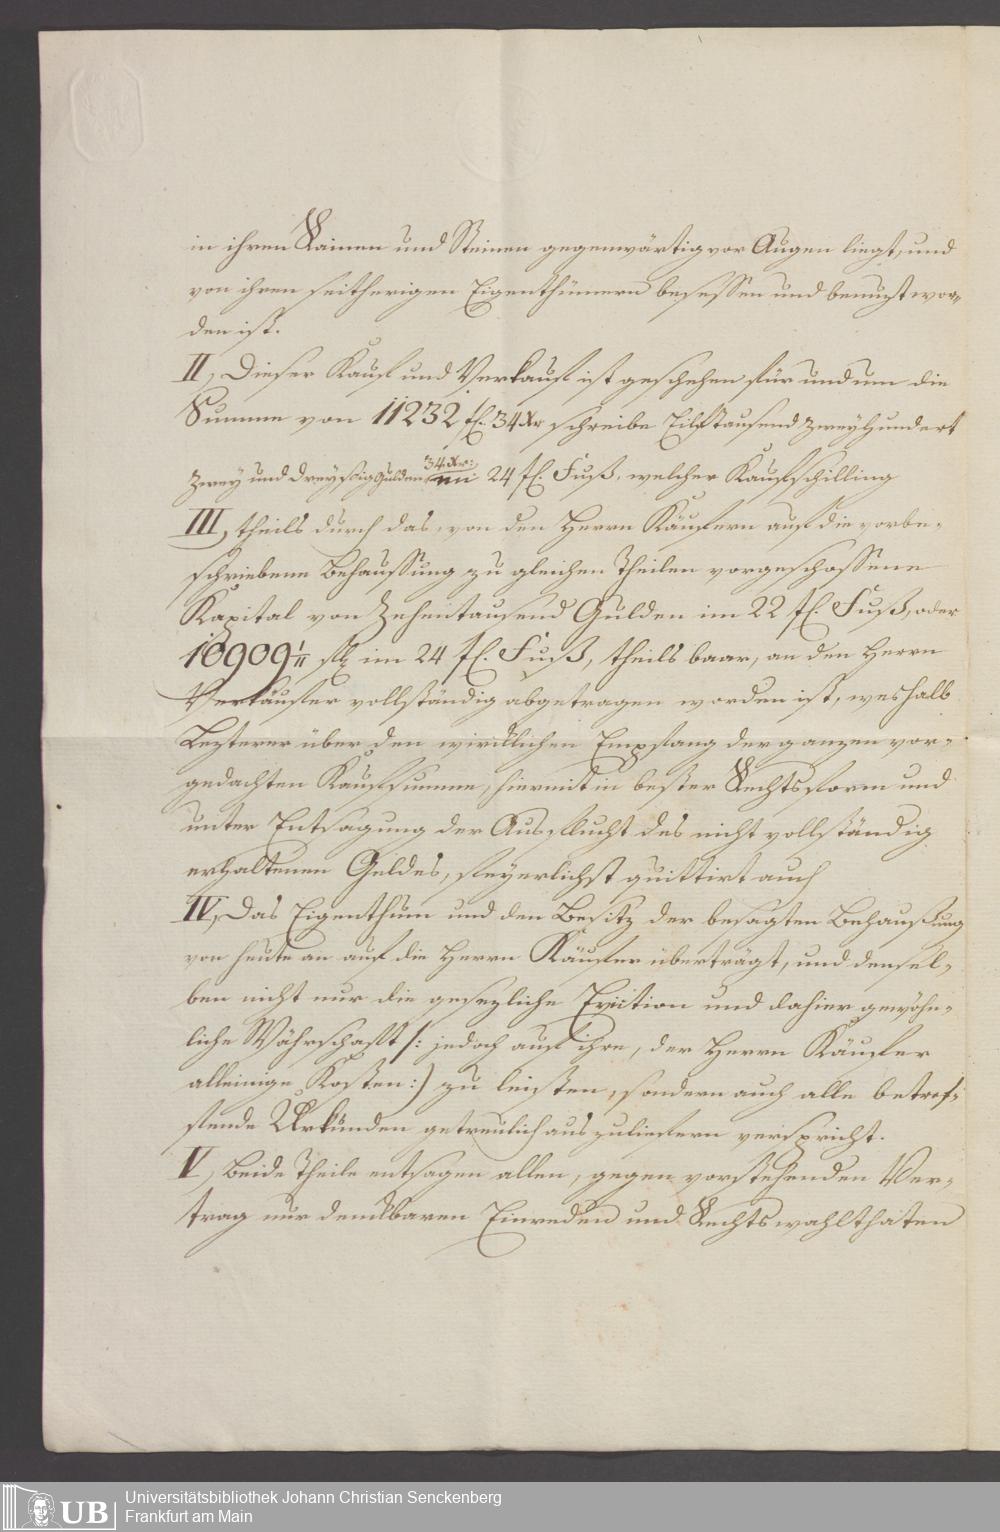 in ihren Rainen und Steinen gegenwärtig vor Augen liegt, und
von ihren seitherigen Eigenthümern besessen und benuzt wor-
den ist.
II, Dieser Kauf und Verkauf ist geschehen für und um die
Summe von 11232 fl. 34 Xr schreibe Eilftausend zweyhundert
34 Xr:
zwey und dreyßig Gulden im 24 fl. Fuß, welcher Kaufschilling
III, theils durch das, von den Herrn Käufern auf die vorbe-
schriebene Behaussung zu gleichen Theilen vorgeschossene
Kapital von Zehentausend Gulden im 22 fl. Fuß, oder
10909 1/11 fl im 24 fl. Fuß, theils baar, an den Herrn
Verkäufer vollständig abgetragen worden ist, weshalb
Lezterer über den wircklichen Empfang der ganzen vor-
gedachten Kaufsumme, hiermit in bester Rechtsform und
unter Entsagung der Ausflucht des nicht vollständig
erhaltenen Geldes, feyerlichst quittirt auch
IV, Das Eigenthum und den Besitz der besagten Behaußung
von heute an auf die Herrn Käufer überträgt, und densel-
ben nicht nur die gesezliche Eviction und dahier gewöhn-
liche Währschaft /: jedoch auf ihre, der Herrn Käufer
alleinige Kosten :/ zu leisten, sondern auch alle betref-
fende Urkunden getreulich auszuliefern verspricht.
V, Beide Theile entsagen allen, gegen vorstehenden Ver-
trag nur denckbaren Einreden und Rechtswohlthaten
UB Universitätsbibliothek Johann Christian Senckenberg
Frankfurt am Main